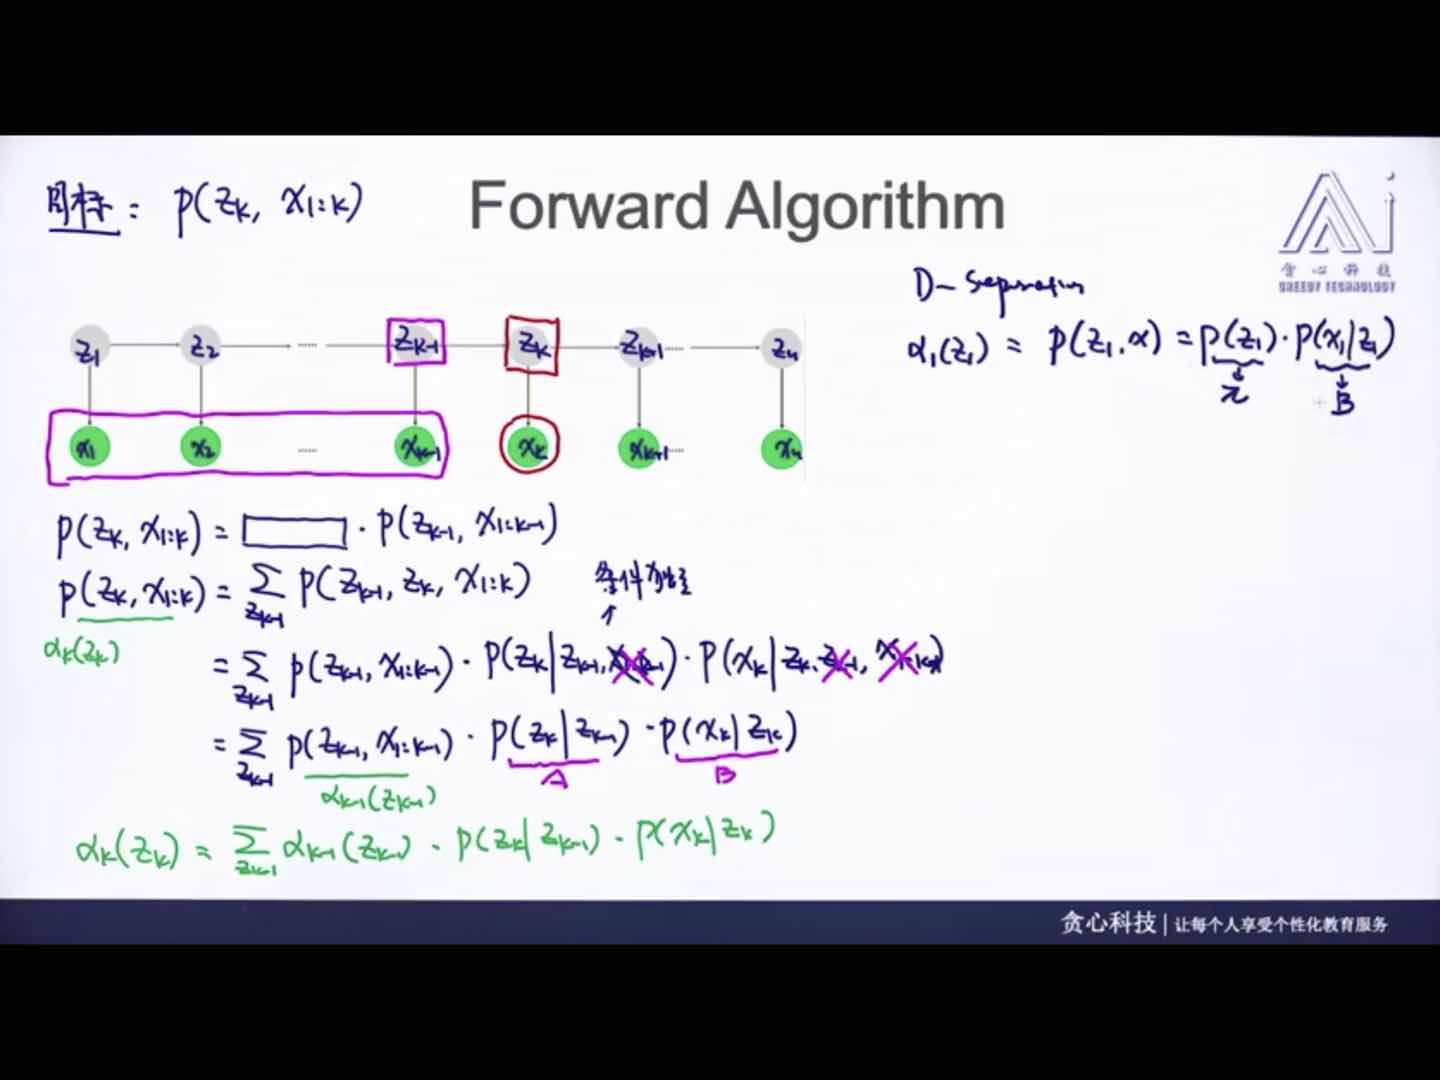 目标: P(Zk, X1:k)
Forward Algorithm
贪心科技
GREEDY TECHNOLOGY
D-Separation
α1(Z1) = P(Z1.x) = P(Z1)·P(x1|Z1)
π B
Z1 Z2 ...... Zk-1 Zk Zk+1 ...... Zn
x1 x2 ...... xk-1 xk xk+1 ...... xn
P(Zk, X1:k) = · P(Zk-1, X1:k-1)
P(Zk, X1:k) = ∑Zk-1 P(Zk-1, Zk, X1:k) 条件独立
αk(Zk) = ∑Zk-1 P(Zk-1, X1:k-1)· P(Zk|Zk-1, X1:k-1)· P(Xk|Zk, Zk-1, X1:k-1)
= ∑Zk-1 P(Zk-1, X1:k-1)· P(Zk|Zk-1)·P(Xk|Zk)
αk-1(Zk-1) A B
αk(Zk) = ∑Zk-1 αk-1(Zk-1)· P(Zk|Zk-1)· P(Xk|Zk)
贪心科技 | 让每个人享受个性化教育服务